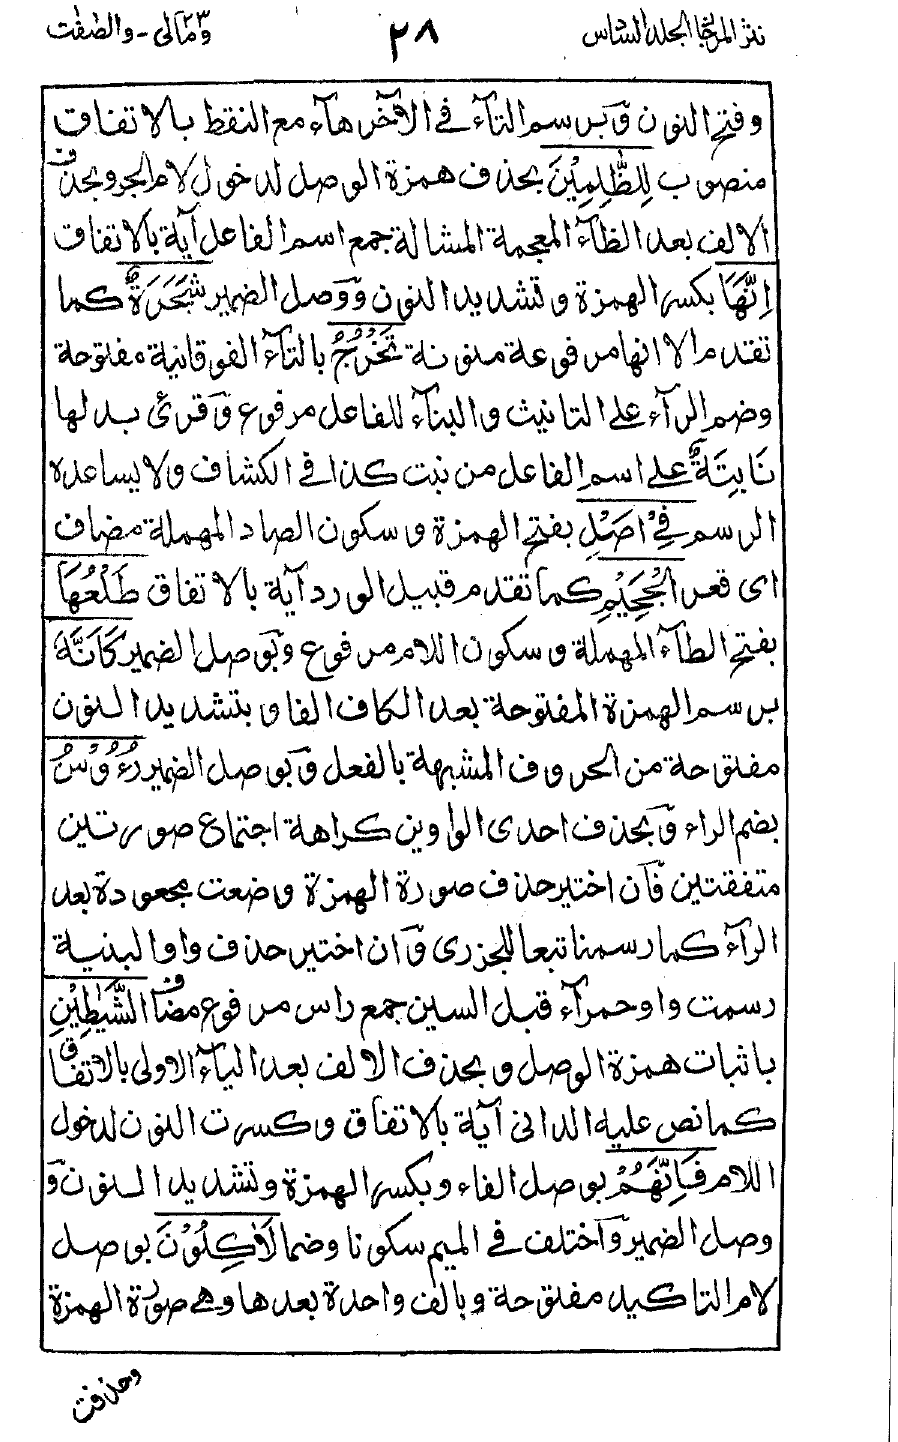 نثر المرجان الجلد السادس
٢٨
ومالى ٢٣ - والصفت
وفتح النون وبرسم التآء فى الآخر هآء مع النقط بالاتفاق
منصوب لِلظّٰلِمِيْنَ بحذف همزة الوصل لدخول لام الجر وبحذف
الالف بعد الظآء المعجمة المشالة جمع اسم الفاعل آية بالاتفاق
اِنَّهَا بكسر الهمزة وتشديد النون ووصل الضمير شَجَرَةٌ كما
تقدم الا انها مرفوعة منونة تَخْرُجُ بالتآء الفوقانية مفتوحة
وضم الرآء على التانيث والبنآء للفاعل مرفوع وقرئ بدلها
نَابِتَةٌ على اسم الفاعل من نبت كذا فى الكشاف ولا يساعده
الرسم فِيْ اَصْلِ بفتح الهمزة وسكون الصاد المهملة مضاف
اى قعر الْجَحِيْمِ كما تقدم قبيل الورد آية بالاتفاق طَلْعُهَا
بفتح الطآء المهملة وسكون اللام مرفوع وبوصل الضمير كَاَنَّهٗ
برسم الهمزة المفتوحة بعد الكاف الفا وبتشديد النون
مفتوحة من الحروف المشبهة بالفعل وبوصل الضمير رُءُوْسُ
بضم الراء وبحذف احدى الواوين كراهة اجتماع صورتين
متفقتين فان اختير حذف صورة الهمزة وضعت مجعودة بعد
الرآء كما رسمنا تبعا للجزرى وان اختير حذف واو البنية
رسمت واو حمرآء قبل السين جمع راس مرفوع مضاف الشَّيٰطِيْنِ
باثبات همزة الوصل وبحذف الالف بعد اليآء الاولى بالاتفاق
كما نص عليه الدانى آية بالاتفاق وكسرت النون لدخول
اللام فَاِنَّهُمْ بوصل الفاء وبكسر الهمزة وتشديد النون و
وصل الضمير واختلف فى الميم سكونا وضما لَاٰكِلُوْنَ بوصل
لام التاكيد مفتوحة وبالف واحدة بعدها وهى صورة الهمزة
وحذفت